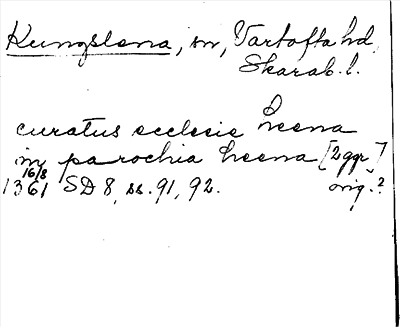 Kungslena, sn, Vartofta hd,
Skarab. l.
curatus ecclesie Leena
in parochia Leena [2ggr]
16/8
1361 SD 8, ss. 91, 92. orig.?